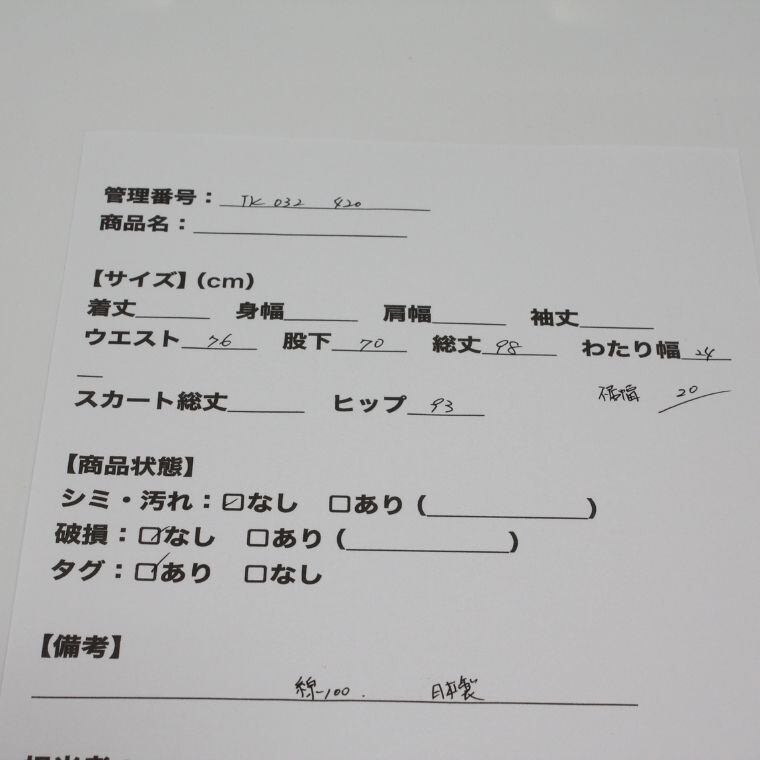 管理番号：TK 032 420
商品名：
【サイズ】(cm)
着丈 身幅 肩幅 袖丈
ウエスト 76 股下 70 総丈 98 わたり幅 24
スカート総丈 ヒップ 93 裾幅 20
【商品状態】
シミ・汚れ：☑なし ☐あり ( )
破損：☑なし ☐あり ( )
タグ：☑あり ☐なし
【備考】
綿-100. 日本製